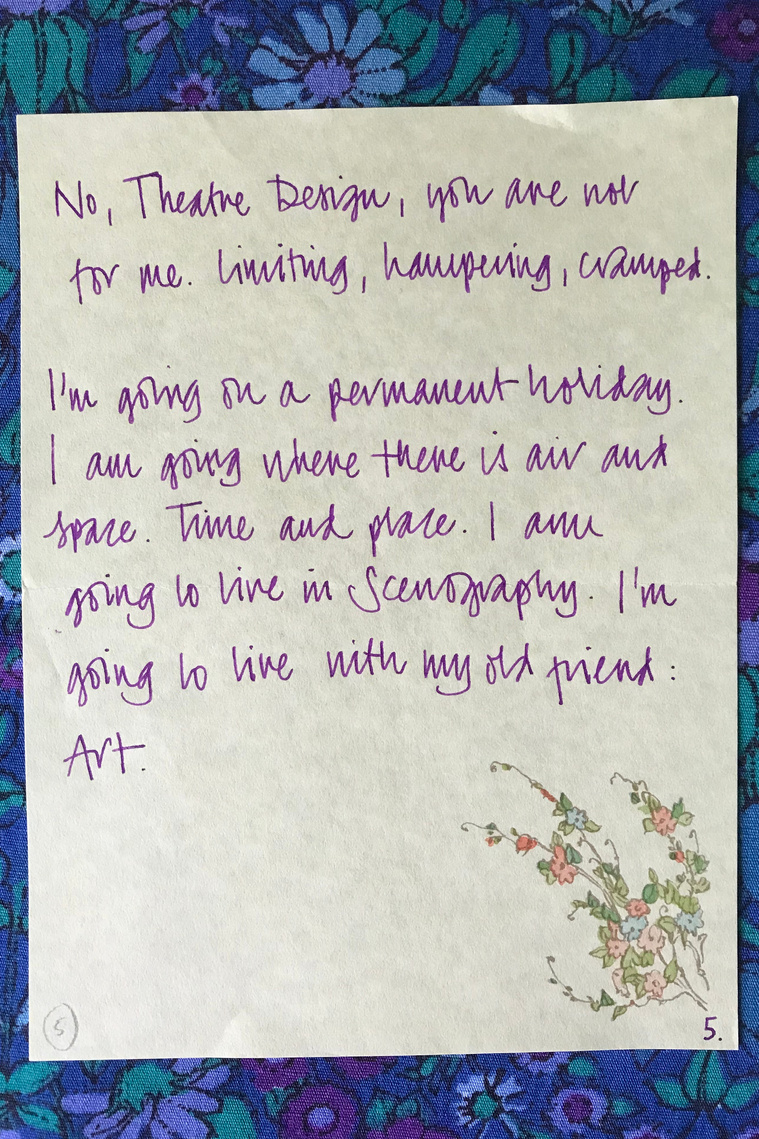 No, Theatre Design, you are not
for me. Limiting, hampering, cramped.
I'm going on a permanent holiday.
I am going where there is air and
space. Time and place. I am
going to live in Scenography. I'm
going to live with my old friend:
Art.
5
5.